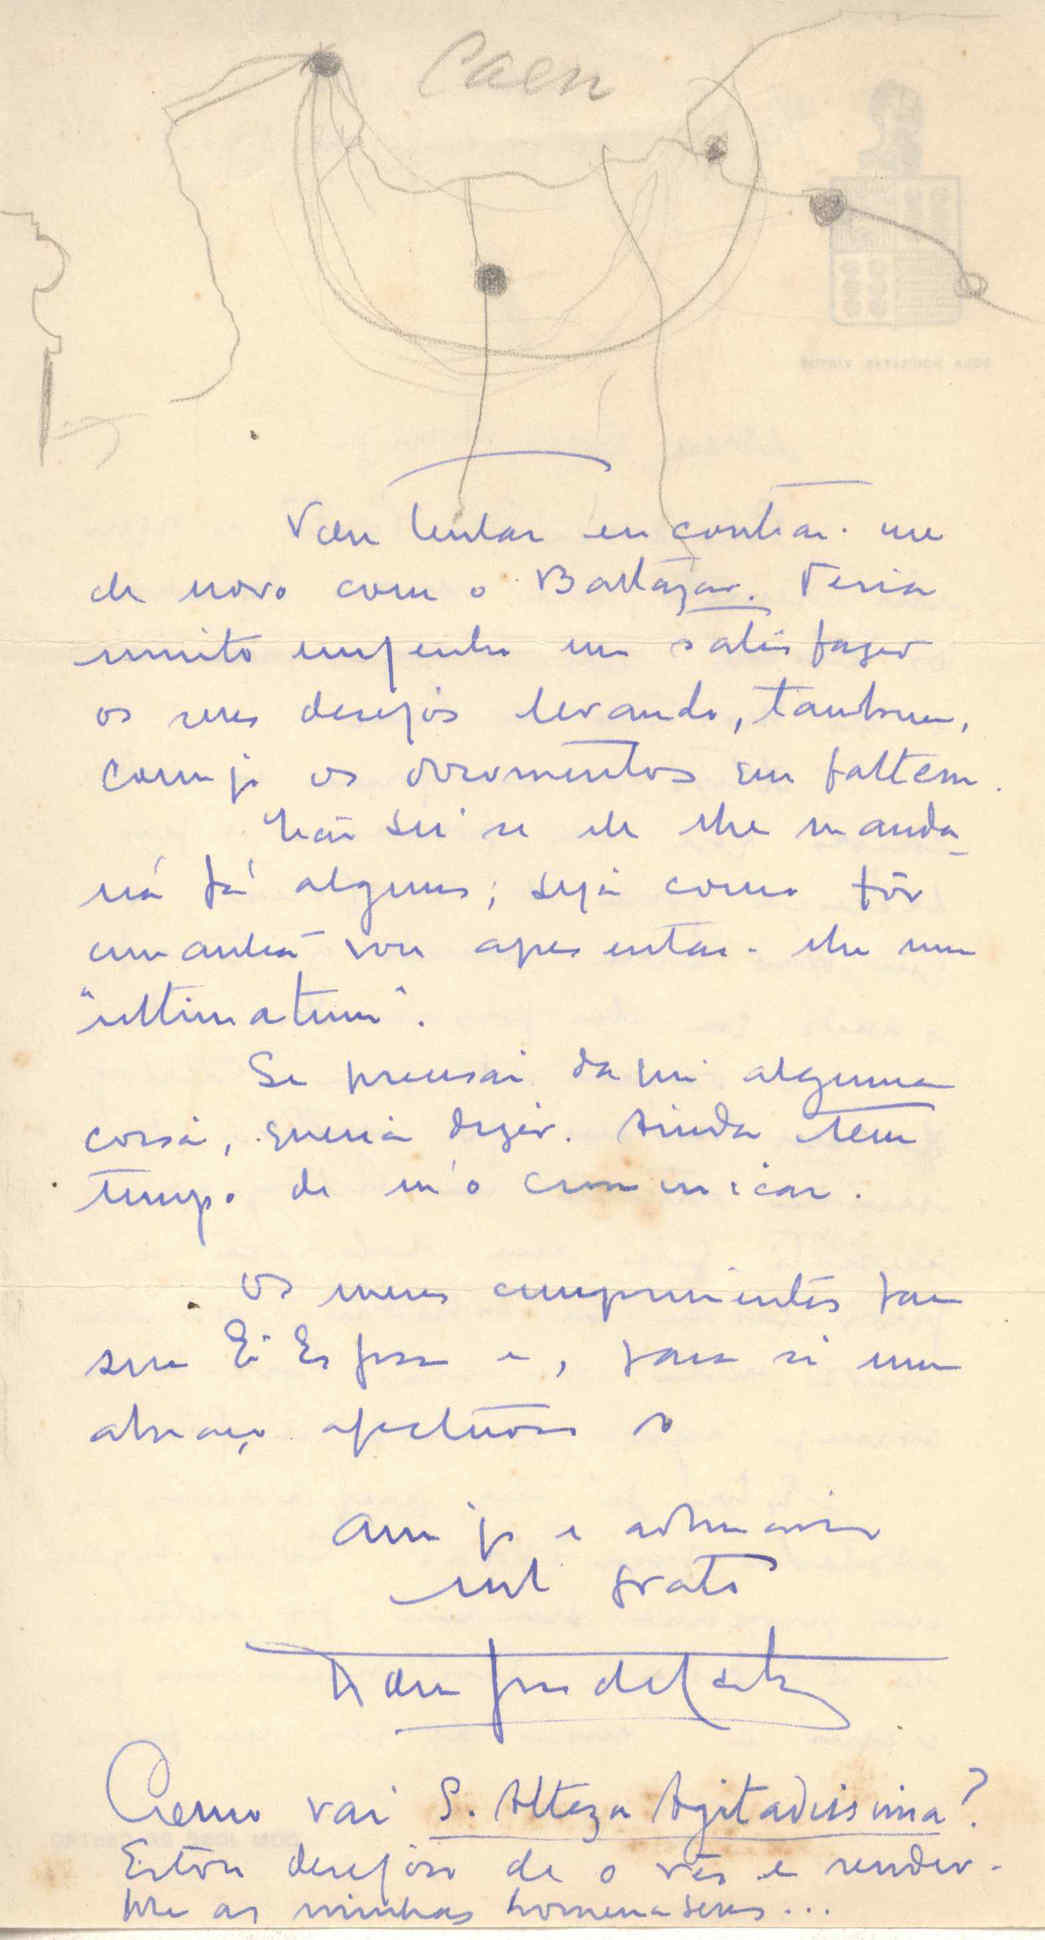 Caen
Vou tentar encontrar-me
de novo com o Baltazar. Teria
muito empenho em satisfazer
os seus desejos levando, tambem,
comigo os documentos que faltem.
Não sei se ele lhe manda-
rá já alguns; seja como fôr
amanhã vou apresentar-lhe um
"ultimatum".
Se precisar daqui alguma
coisa, queira dizer. Ainda tem
tempo de m'o comunicar.
Os meus cumprimentos para
sua Exª Esposa e, para si um
abraço afectuoso do
amigo e admirador
mt grato
Como vai S. Alteza Agitadissima?
Estou desejoso de o vêr e render-
lhe as minhas homenagens...